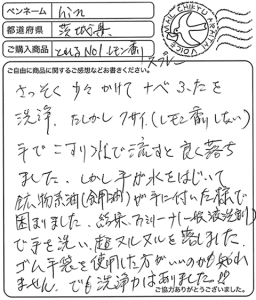 ペンネーム hin
都道府県 茨城県
ご購入商品 とれるNo1 レモン香り スプレー
ご自由に商品に関するご感想などお書きください。
さっそく 少々 かけて ナベ ふたを
洗浄。たしかし クサイ(レモン香りしない)
手でこすり 水で流すと 良く落ち
ました。しかし手が水をはじいて
鉱物系油(食用油)が手に付いた様で
困りました。結果、ファミリーナ(一般液洗剤)
で手を洗い、超ヌルヌルを落しました。
ゴム手袋を使用した方がいいのかも知れ
ません。でも洗浄力はありました!!
ご協力ありがとうございました。
MAIL CHIKYU ARIGATAI VOICE